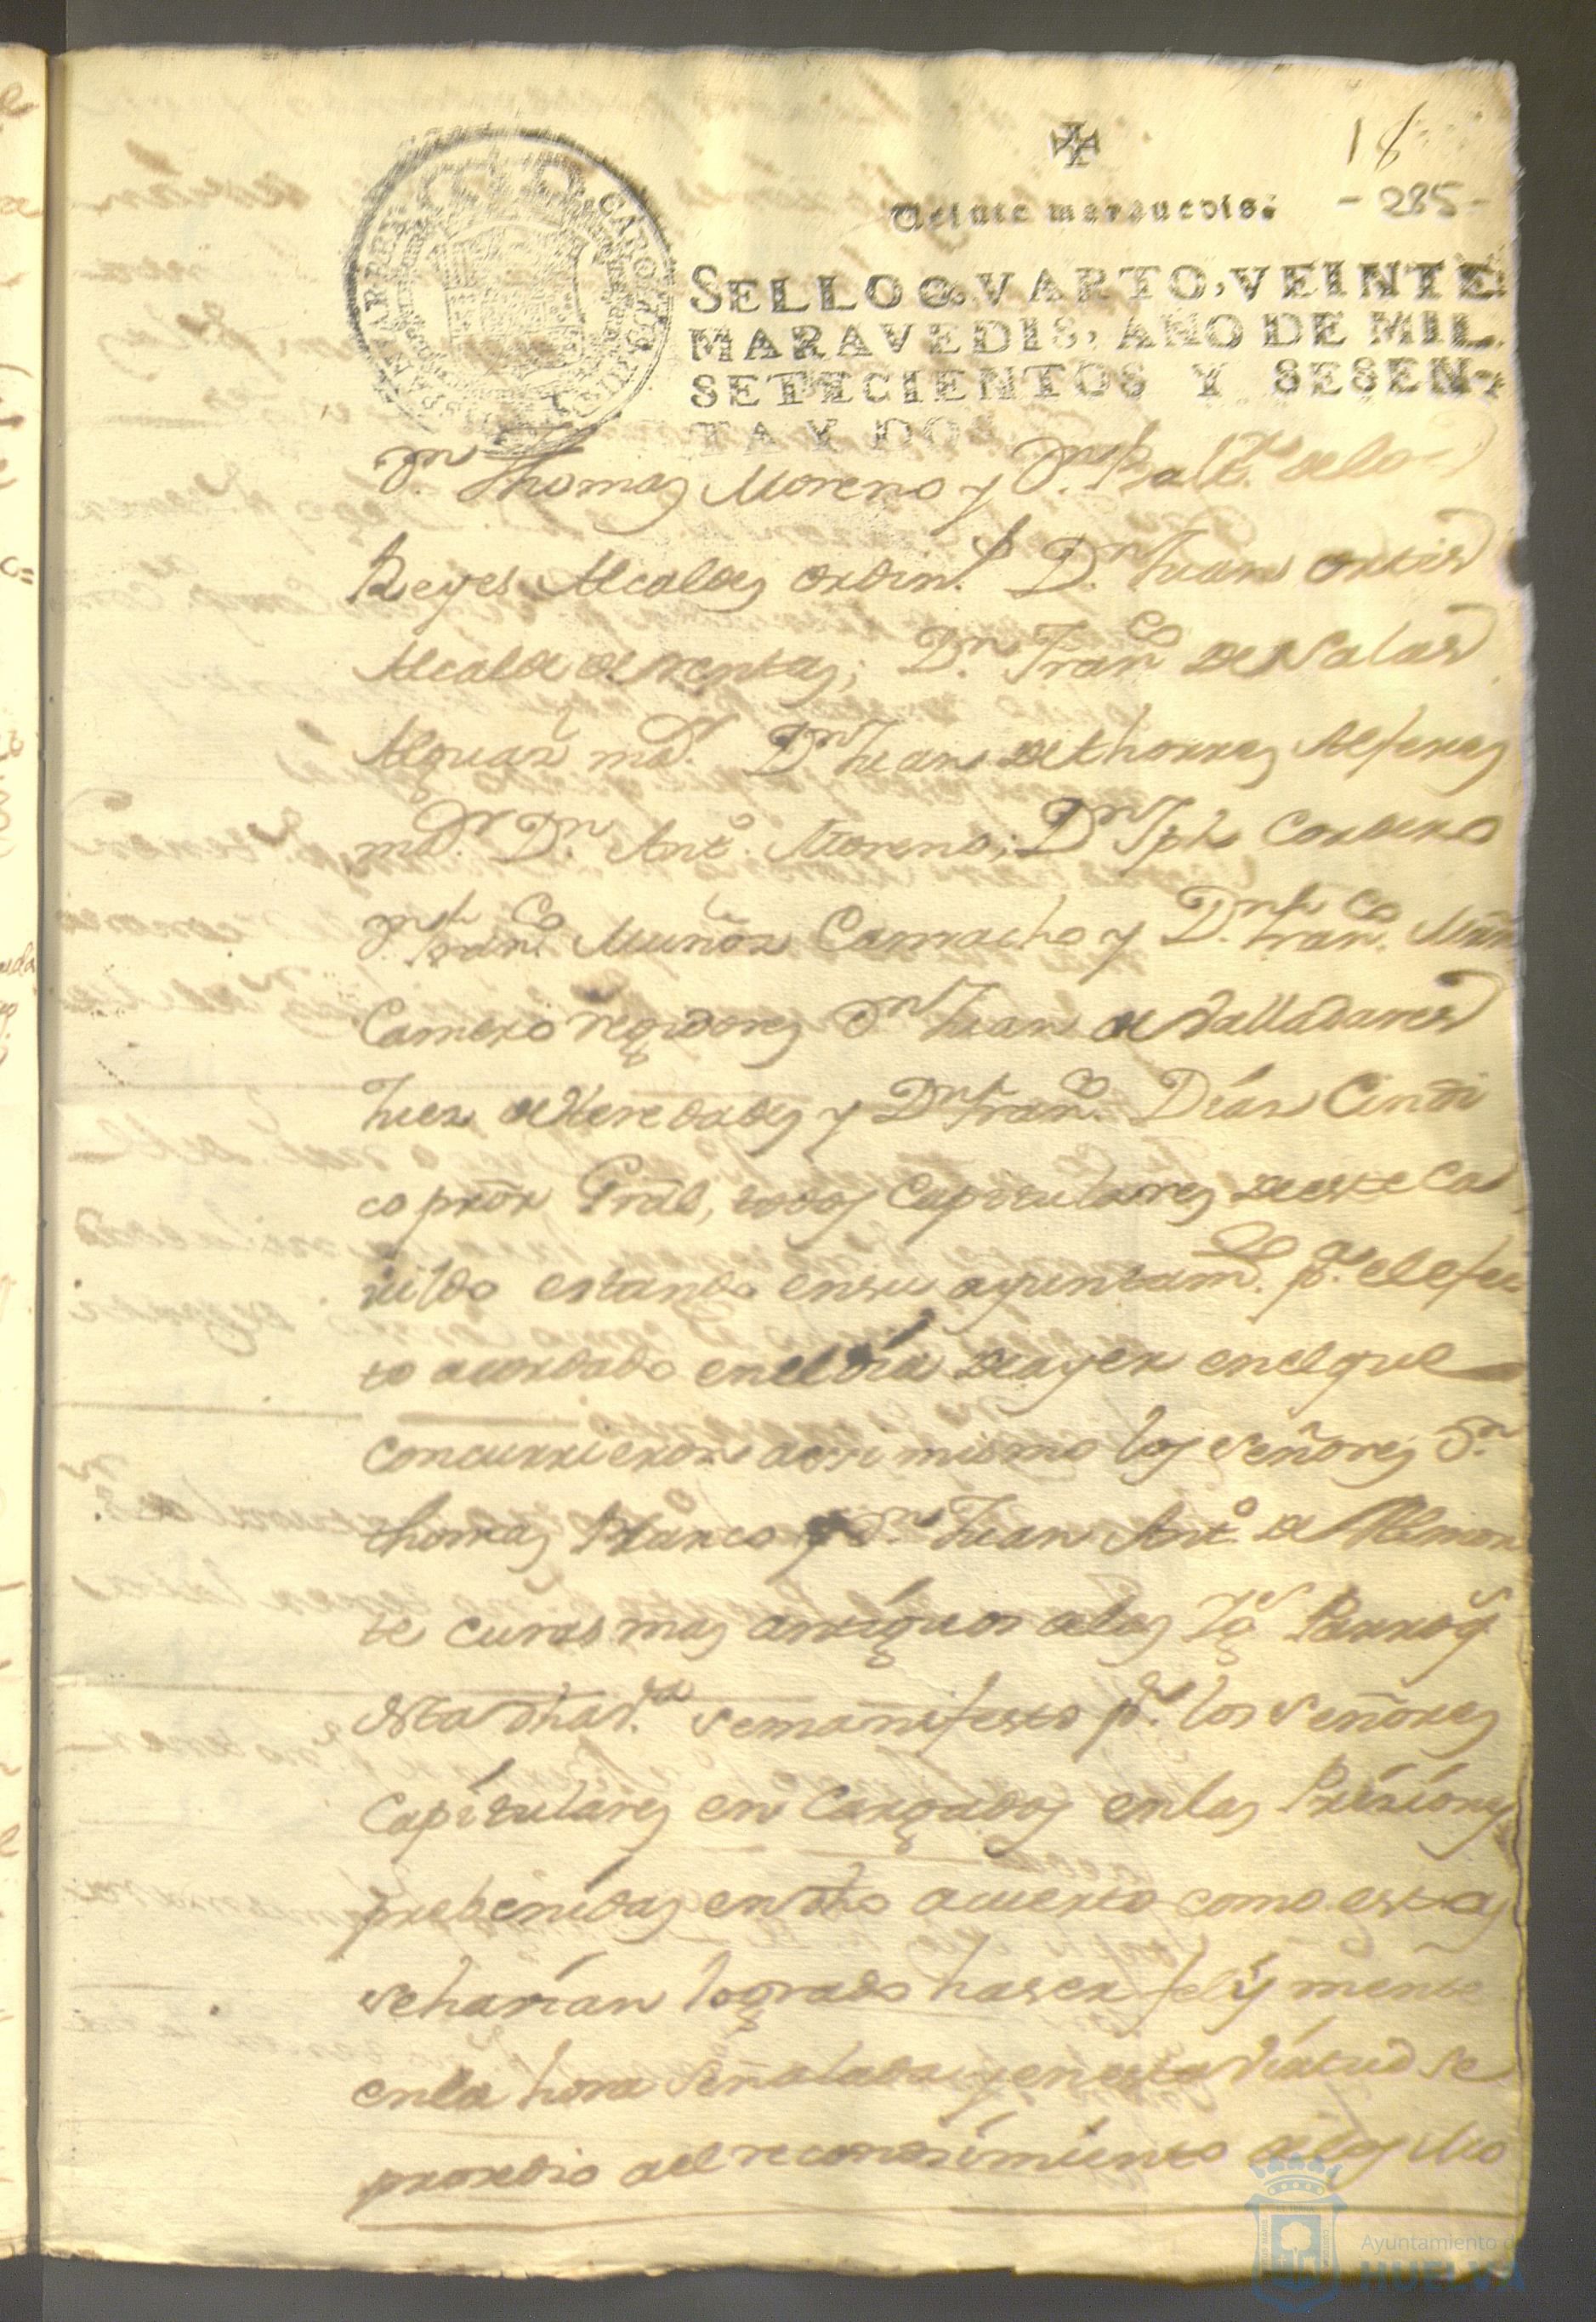 18
Veinte marauedis.
- 285 -
SELLO QVARTO, VEINTE
MARAVEDIS, AÑO DE MIL
SETECIENTOS Y SESEN-
TA Y DOS
Dn. Thomas Moreno y Dn. Balt.r delos
Reyes Alcaldes ordin.s Dn. Juan ortis
Alcalde de rentas; Dn. Franco de Salas
Alguazl mor. Dn Juan de thorres Alferes
mor. Dn. Anto. Moreno; Dn Jph Cordero
Dn. Franco. Muñoz Camacho y Dn. Franco. Muñz
Camero regidores Dn Juan de Valladares
Juez de Heredades y Dn Franco. Días Cindi
co pror Gral, todos Capitulares de este Ca
uildo estando ensu ayuntamto. pa. el efec
to acordado en el día de ayer en el que
concurrieron assi mismo los Señores Dn.
thomas Blanco y Dn. Juan Anto. de Almon
te curas mas antiguos de las Ygs Parroqs
esta dha va. se manifesto pr. los Señores
Capitulares en Cargados en las Prisiones
prebenidas en dho acuerdo como estas
se harían logrado haser felis mente
en la hora señalada y en esta virtud se
prosedio al reconosimiento de los Mo
Ayuntamiento de
HUELVA